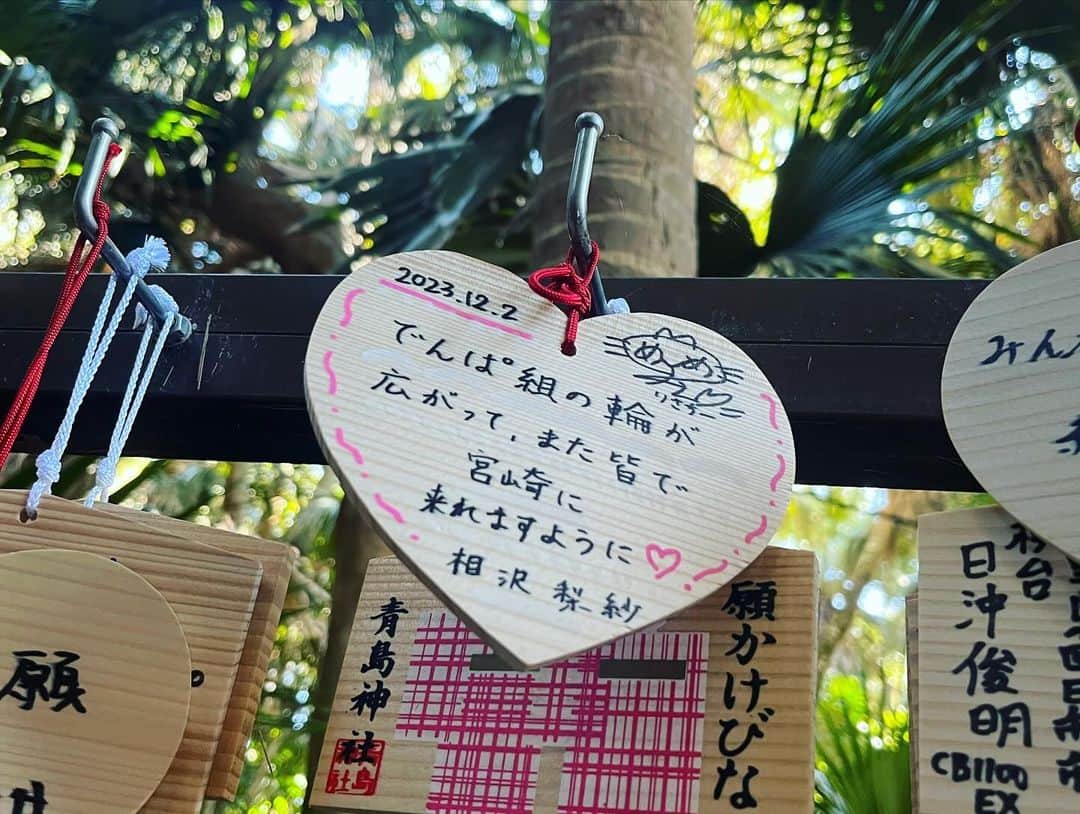 2023.12.2
でんぱ組の輪が
広がって、また皆で
宮崎に
来れますように♡
相沢 梨紗
めめ
りさちー
青島神社
願かけびな
願
みんな
日沖俊明
CB1100
EX